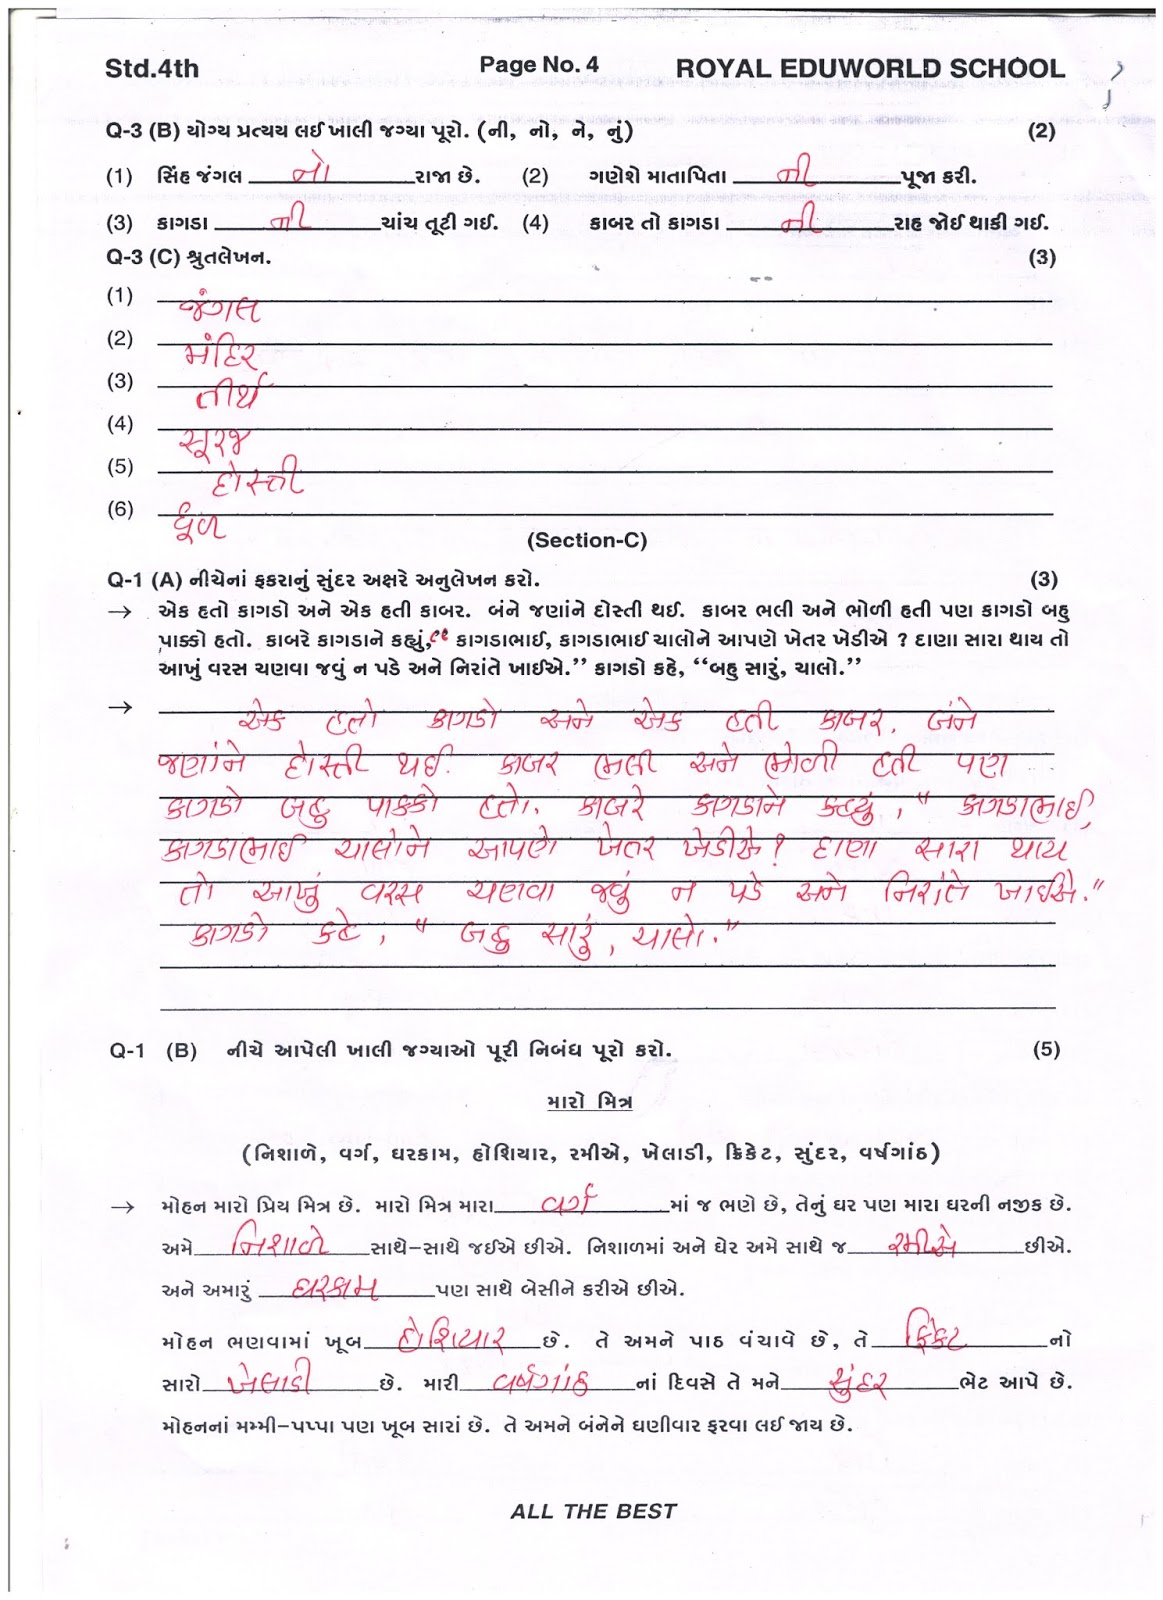 Std.4th Page No. 4 ROYAL EDUWORLD SCHOOL
Q-3 (B) યોગ્ય પ્રત્યય લઈ ખાલી જગ્યા પૂરો. (ની, નો, ને, નું) (2)
(1) સિંહ જંગલ નો રાજા છે. (2) ગણેશે માતાપિતા ની પૂજા કરી.
(3) કાગડા ની ચાંચ તૂટી ગઈ. (4) કાબર તો કાગડા ની રાહ જોઈ થાકી ગઈ.
Q-3 (C) શ્રુતલેખન. (3)
(1) જંગલ
(2) મંદિર
(3) તીર્થ
(4) સૂરજ
(5) દોસ્તી
(6) ધૂળ
(Section-C)
Q-1 (A) નીચેનાં ફકરાનું સુંદર અક્ષરે અનુલેખન કરો. (3)
→ એક હતો કાગડો અને એક હતી કાબર. બંને જણાંને દોસ્તી થઈ. કાબર ભલી અને ભોળી હતી પણ કાગડો બહુ
પાક્કો હતો. કાબરે કાગડાને કહ્યું, “ કાગડાભાઈ, કાગડાભાઈ ચાલોને આપણે ખેતર ખેડીએ ? દાણા સારા થાય તો
આખું વરસ ચણવા જવું ન પડે અને નિરાંતે ખાઈએ.’’ કાગડો કહે, ‘‘બહુ સારું, ચાલો.’’
→ એક હતો કાગડો અને એક હતી કાબર. બંને
જણાંને દોસ્તી થઈ. કાબર ભલી અને ભોળી હતી પણ
કાગડો બહુ પાક્કો હતો. કાબરે કાગડાને કહ્યું, “ કાગડાભાઈ,
કાગડાભાઈ ચાલોને આપણે ખેતર ખેડીએ ? દાણા સારા થાય
તો આખું વરસ ચણવા જવું ન પડે અને નિરાંતે ખાઈએ.”
કાગડો કહે, “ બહુ સારું, ચાલો.”
Q-1 (B) નીચે આપેલી ખાલી જગ્યાઓ પૂરી નિબંધ પૂરો કરો. (5)
મારો મિત્ર
(નિશાળે, વર્ગ, ઘરકામ, હોશિયાર, રમીએ, ખેલાડી, ક્રિકેટ, સુંદર, વર્ષગાંઠ)
→ મોહન મારો પ્રિય મિત્ર છે. મારો મિત્ર મારા વર્ગ માં જ ભણે છે, તેનું ઘર પણ મારા ઘરની નજીક છે.
અમે નિશાળે સાથે-સાથે જઈએ છીએ. નિશાળમાં અને ઘેર અમે સાથે જ રમીએ છીએ.
અને અમારું ઘરકામ પણ સાથે બેસીને કરીએ છીએ.
મોહન ભણવામાં ખૂબ હોશિયાર છે. તે અમને પાઠ વંચાવે છે, તે ક્રિકેટ નો
સારો ખેલાડી છે. મારી વર્ષગાંઠ નાં દિવસે તે મને સુંદર ભેટ આપે છે.
મોહનનાં મમ્મી-પપ્પા પણ ખૂબ સારાં છે. તે અમને બંનેને ઘણીવાર ફરવા લઈ જાય છે.
ALL THE BEST